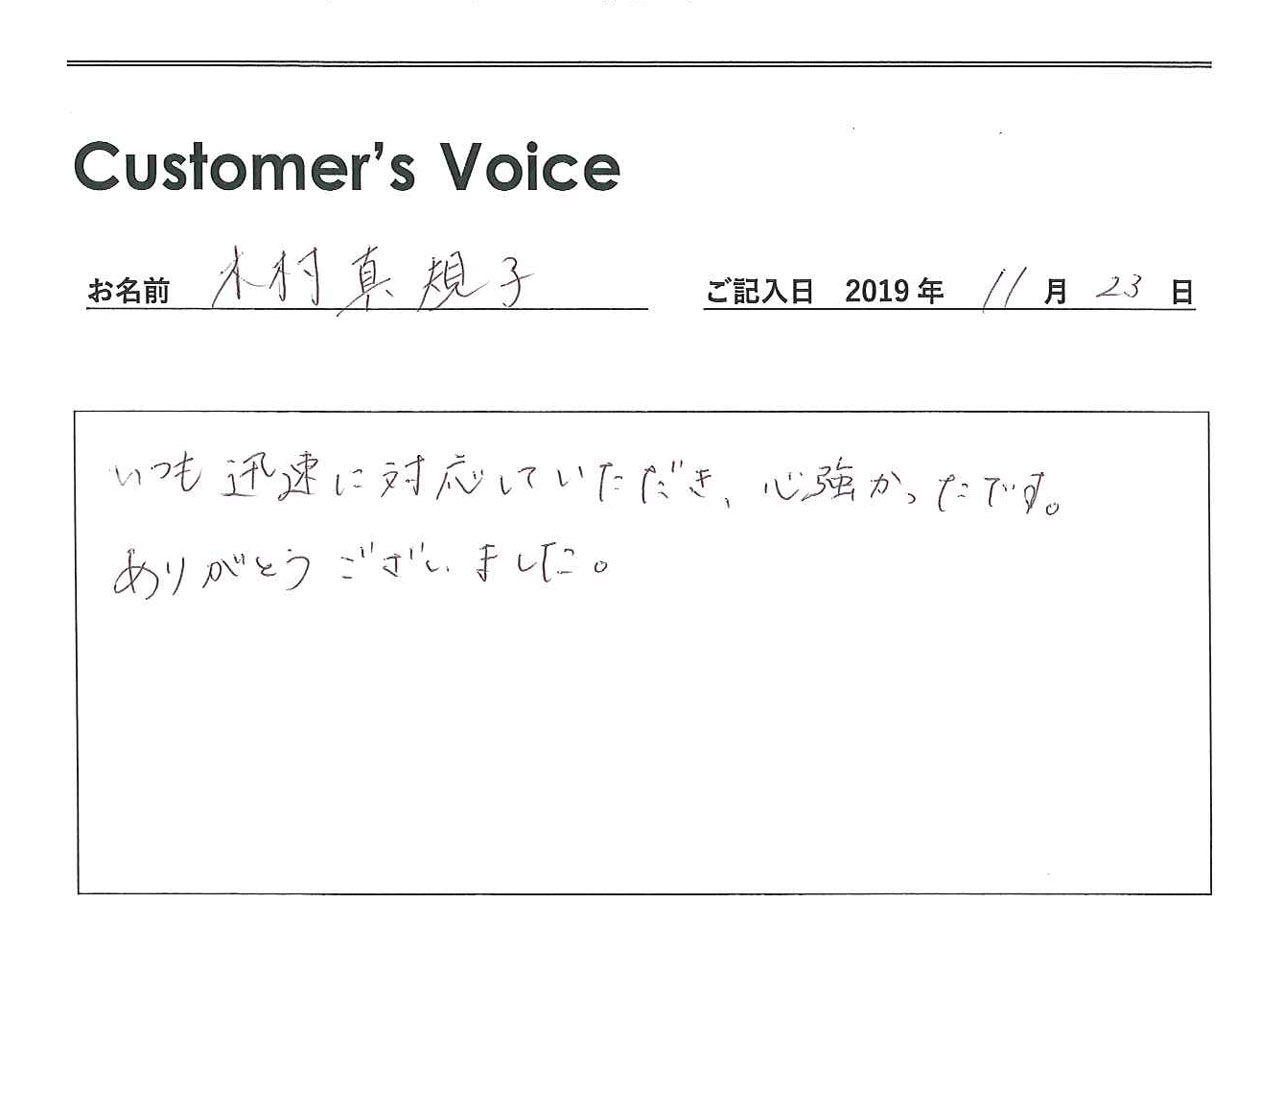 Customer's Voice
お名前 木村真規子 ご記入日 2019年 11月 23日
いつも迅速に対応していただき、心強かったです。
ありがとうございました。